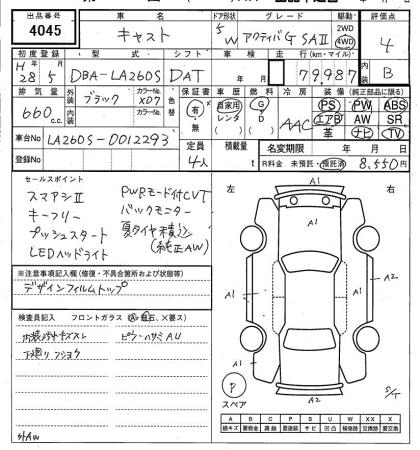 出品番号 4045
車名 キャスト
ドア形状 5 W
グレード アクティバG SAⅡ
駆動 2WD 4WD
評価点 4
内装 B
初度登録 H 28年 5月
型式 DBA-LA260S
シフト DAT
車検 年 月
走行(km・マイル) 79,987
排気量 660 c.c.
外装 ブラック
カラーNo. X07
内装
カラーNo.
色替
保証書 有 無
車歴 自家用 レンタ
燃料 G D
冷房 AAC
装備(純正部品に限る)
PS PW ABS
エアB AW SR
革 ナビ TV
車台No LA260S-0012293
登録No
定員 4人
積載量 t
名変期限 年 月 日
R料金 未預託・預託済 8,550円
セールスポイント
スマアシⅡ
キーフリー
プッシュスタート
LEDヘッドライト
PWRモード付CVT
バックモニター
夏タイヤ積込
(純正AW)
※注意事項記入欄(修復・不具合箇所および状態等)
デザインフィルムトップ
検査員記入 フロントガラス (A・飛石、X要ス)
内装 キズスレ
下廻り フショク
ピラーハサミ AU
外AW
左 右
A1
A2
A1
A1
A1
A2
A2
S/T
P
スペア
A B C P S U W XX X
線キズ 要板金 腐蝕 要塗装 サビ 凹凸 補修跡 交換跡 要交換